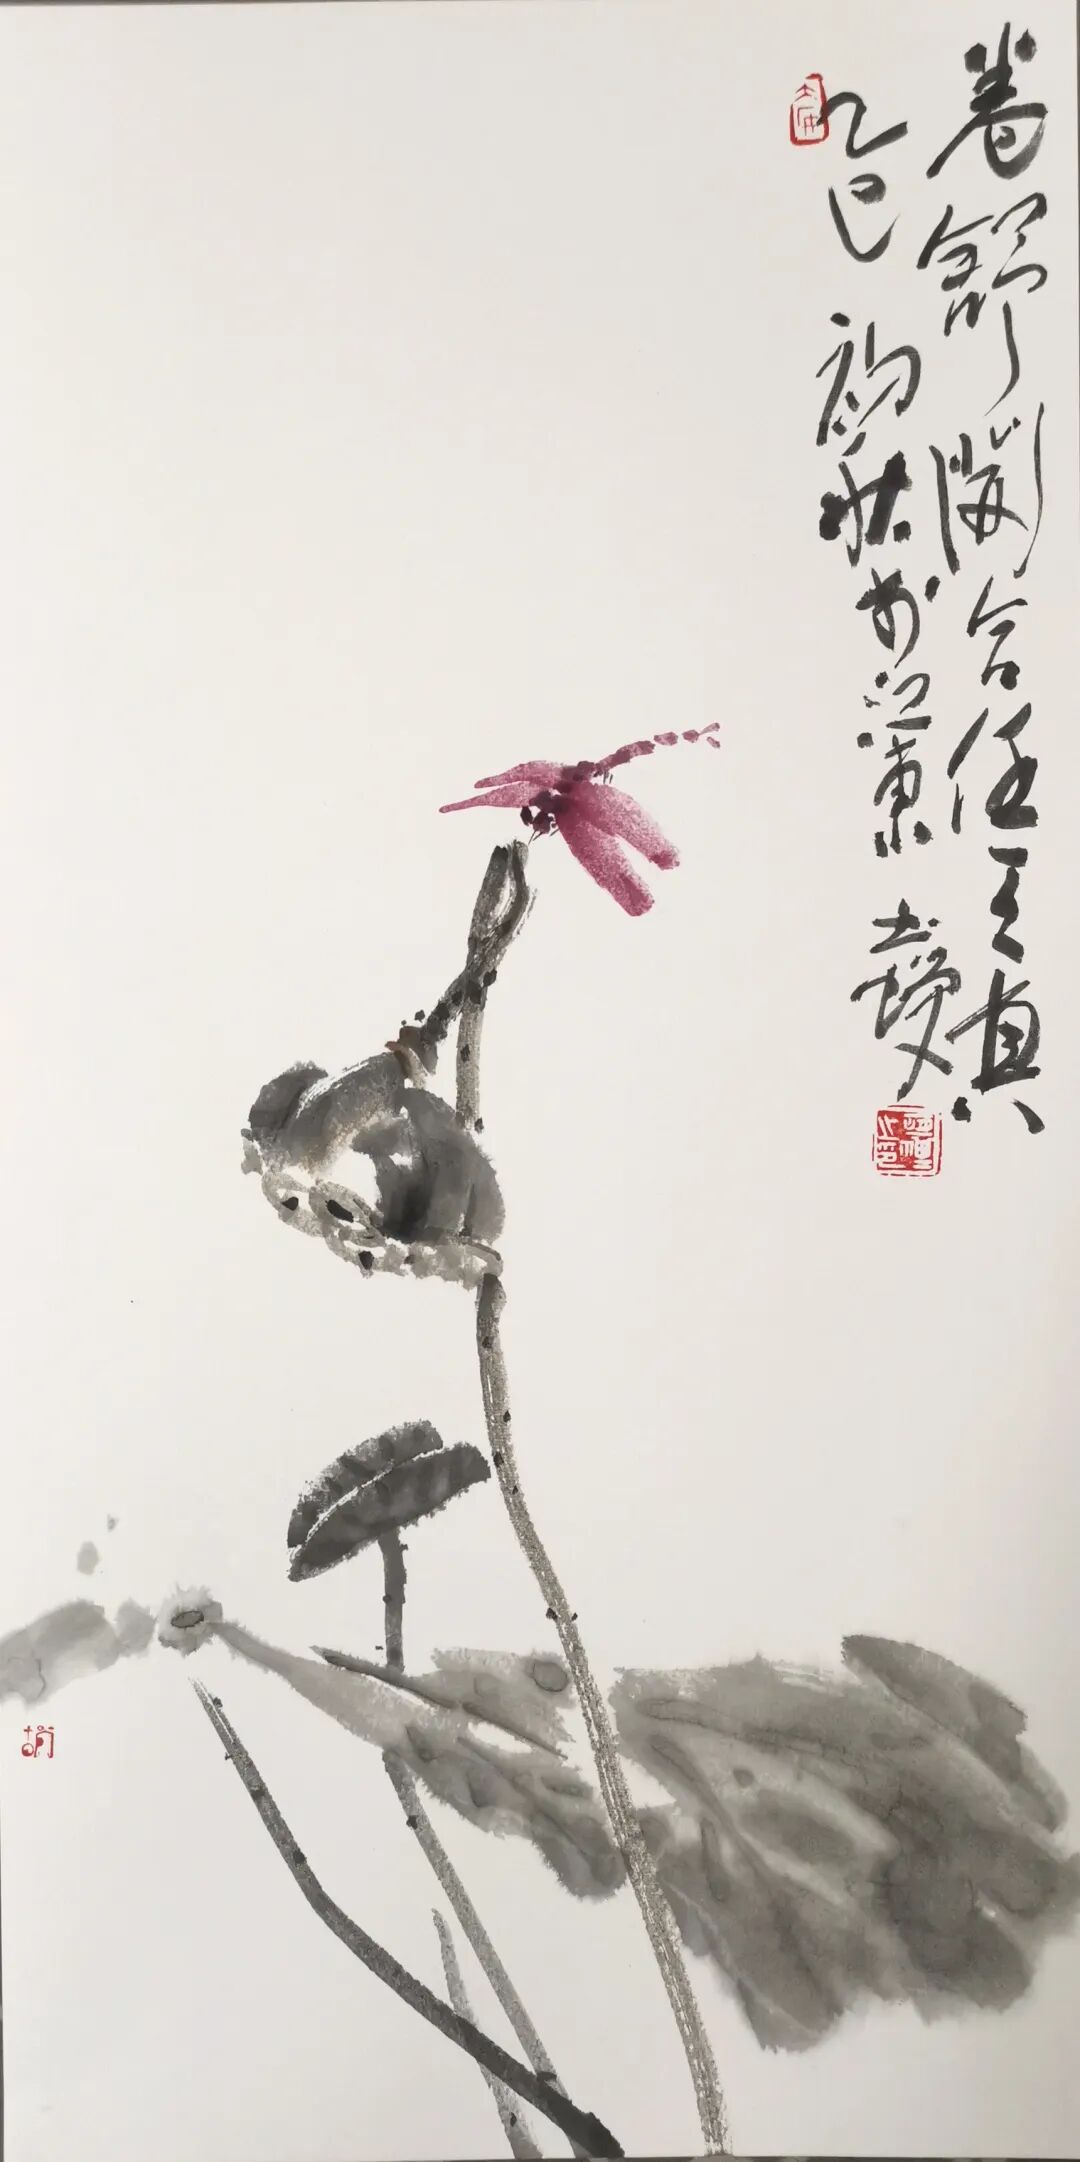 卷舒開合任天真
乙巳初秋於江東
胡